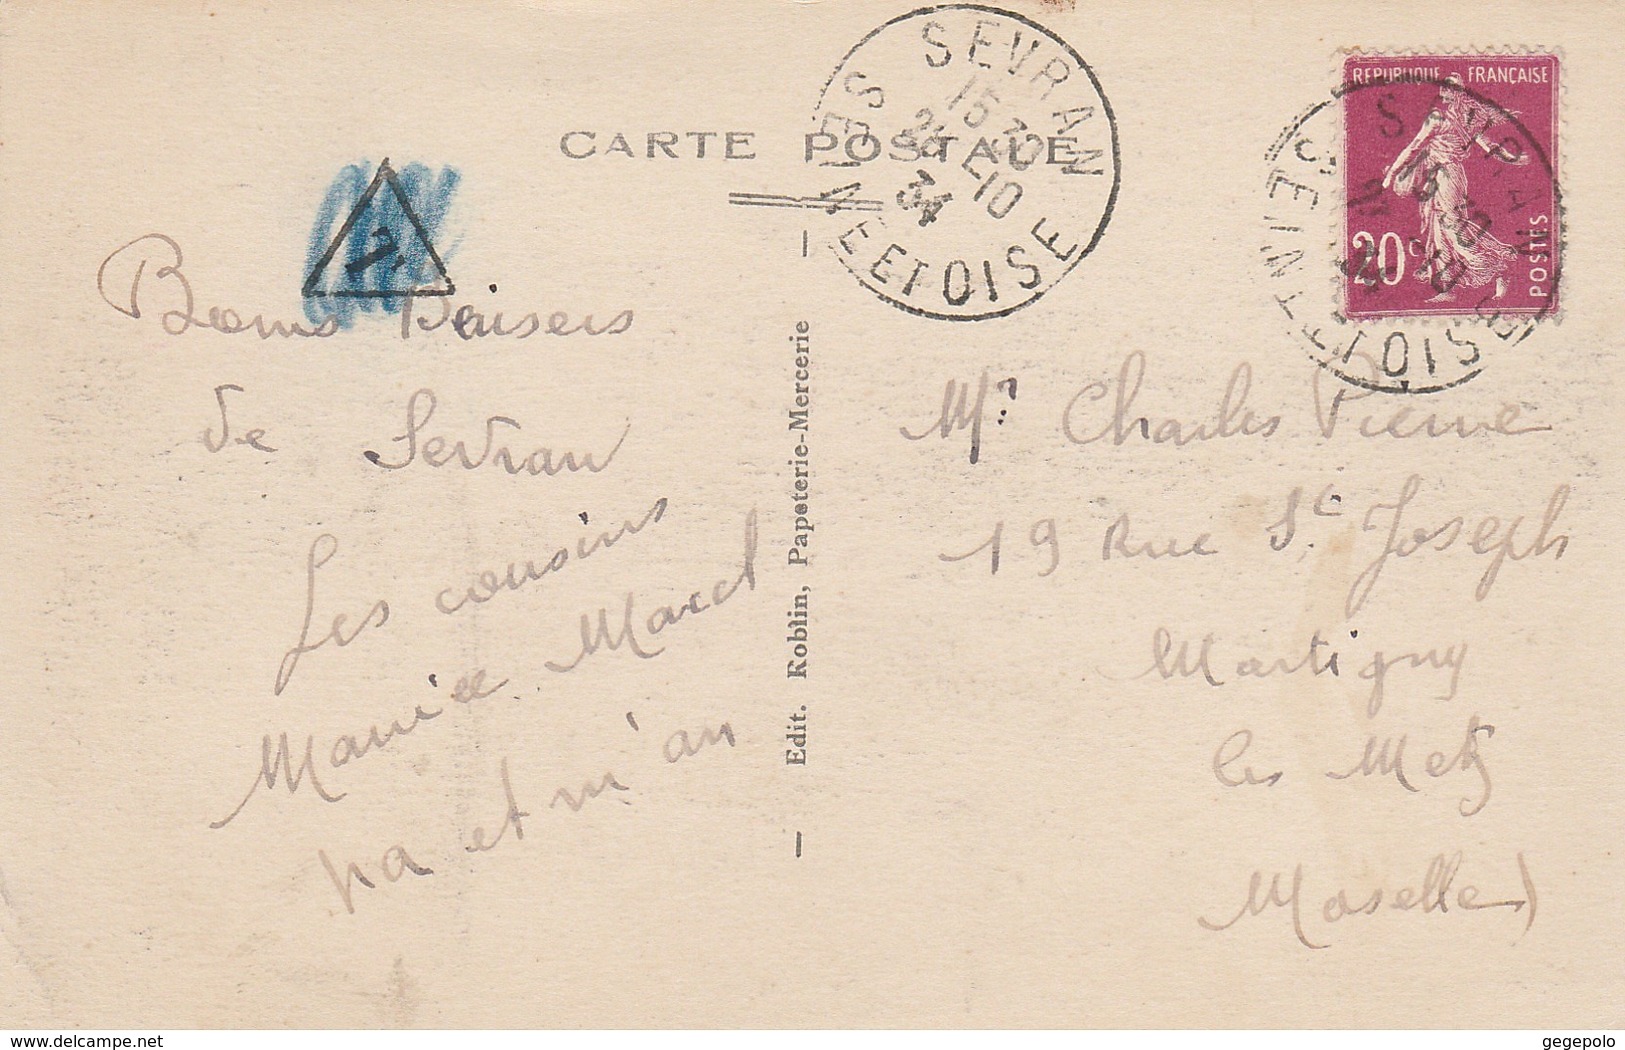 CARTE POSTALE
SEVRAN
15 30
26 -10
34
SEINE ET OISE
REPUBLIQUE FRANÇAISE
20c
POSTES
SEVRAN
15 30
SEINE ET OISE
T
Bons Baisers
de Sevran
Les cousins
Maurice Marcel
pa et m'an
— Edit. Roblin, Papeterie-Mercerie —
Mr Charles Pierre
19 Rue St Joseph
Martigny
les Metz
Moselle)
www.delcampe.net
gegepolo